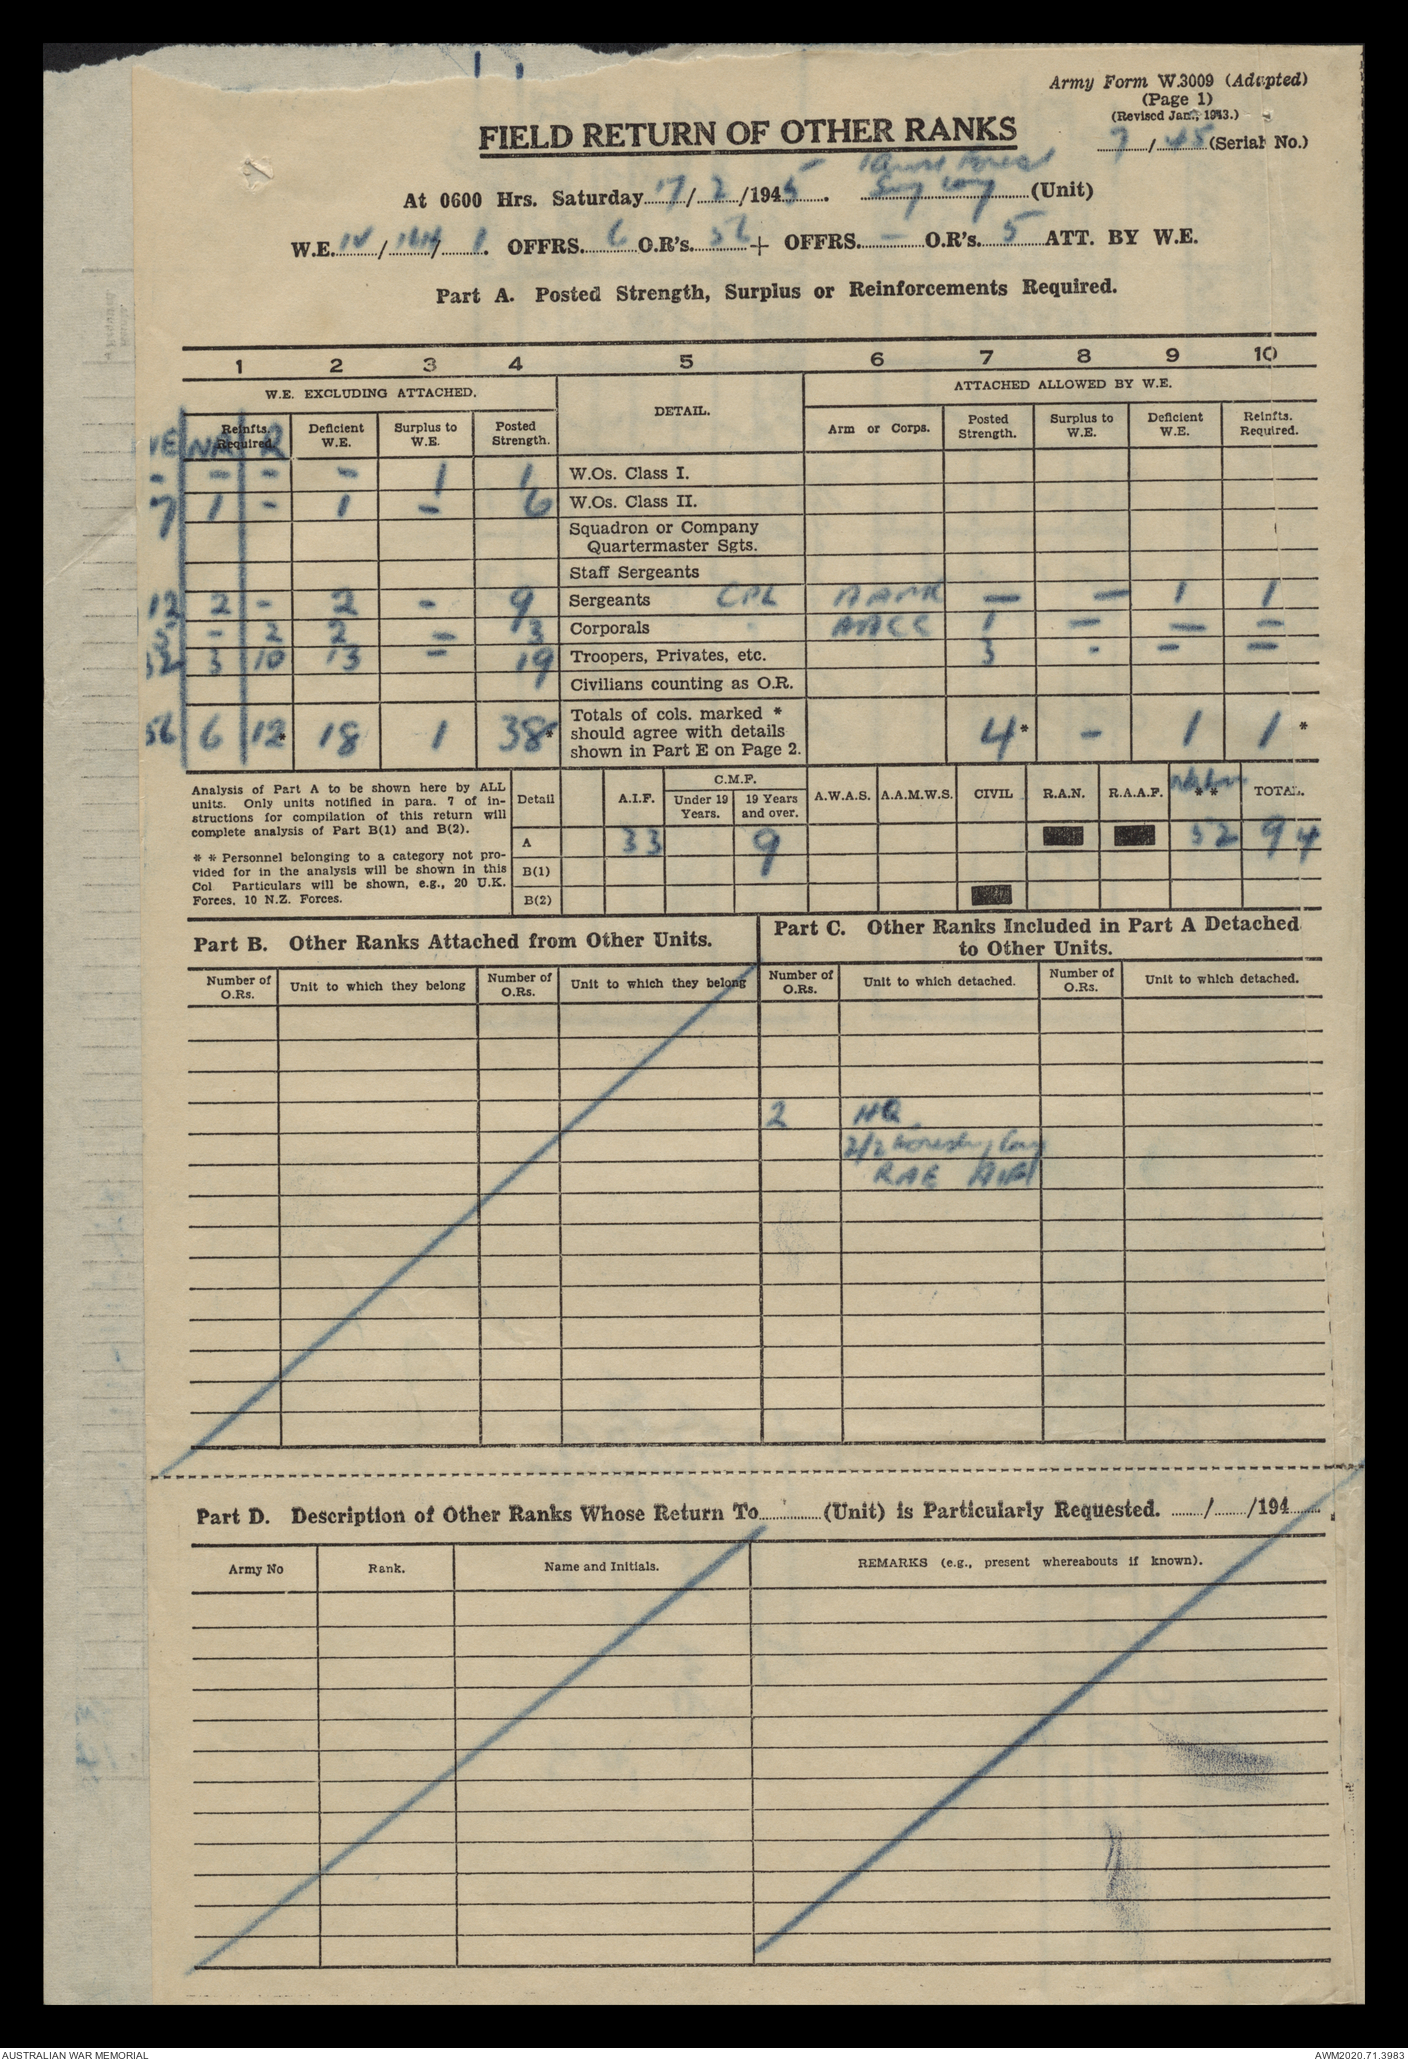 Army Form W.3009 (Adapted)
(Page 1)
(Revised Jan., 1943.)
FIELD RETURN OF OTHER RANKS
7/45 (Serial No.)
At 0600 Hrs. Saturday 17/2/1945. Forest Svy Coy (Unit)
W.E. IV/ / 1. OFFRS. 6 O.R's. 56 + OFFRS. — O.R's. 5 ATT. BY W.E.
Part A. Posted Strength, Surplus or Reinforcements Required.
1 2 3 4 5 6 7 8 9 10
W.E. EXCLUDING ATTACHED. DETAIL. ATTACHED ALLOWED BY W.E.
WE Reinfts. Required. NR R Deficient W.E. Surplus to W.E. Posted Strength. Arm or Corps. Posted Strength. Surplus to W.E. Deficient W.E. Reinfts. Required.
- - - - 1 1 W.Os. Class I.
7 1 - 1 - 6 W.Os. Class II.
Squadron or Company
Quartermaster Sgts.
Staff Sergeants
12 2 - 2 - 9 Sergeants CPL AAMC — — 1 1
5 - 2 2 - 3 Corporals AACC 1 — — —
32 3 10 13 - 19 Troopers, Privates, etc. 3 - - —
Civilians counting as O.R.
56 6 12* 18 1 38* Totals of cols. marked *
should agree with details
shown in Part E on Page 2. 4* - 1 1 *
Analysis of Part A to be shown here by ALL
units. Only units notified in para. 7 of in-
structions for compilation of this return will
complete analysis of Part B(1) and B(2).
* * Personnel belonging to a category not pro-
vided for in the analysis will be shown in this
Col Particulars will be shown, e.g., 20 U.K.
Forces, 10 N.Z. Forces.
Detail A.I.F. C.M.F. Under 19 Years. 19 Years and over. A.W.A.S. A.A.M.W.S. CIVIL R.A.N. R.A.A.F. * * TOTAL.
A 33 9 52 94
B(1)
B(2)
Part B. Other Ranks Attached from Other Units.
Part C. Other Ranks Included in Part A Detached
to Other Units.
Number of O.Rs. Unit to which they belong Number of O.Rs. Unit to which they belong Number of O.Rs. Unit to which detached. Number of O.Rs. Unit to which detached.
2 HQ
2/2 Forestry Coy
RAE AIF
Part D. Description of Other Ranks Whose Return To............(Unit) is Particularly Requested. ....../....../194......
Army No Rank. Name and Initials. REMARKS (e.g., present whereabouts if known).
AUSTRALIAN WAR MEMORIAL
AWM2020.71.3983